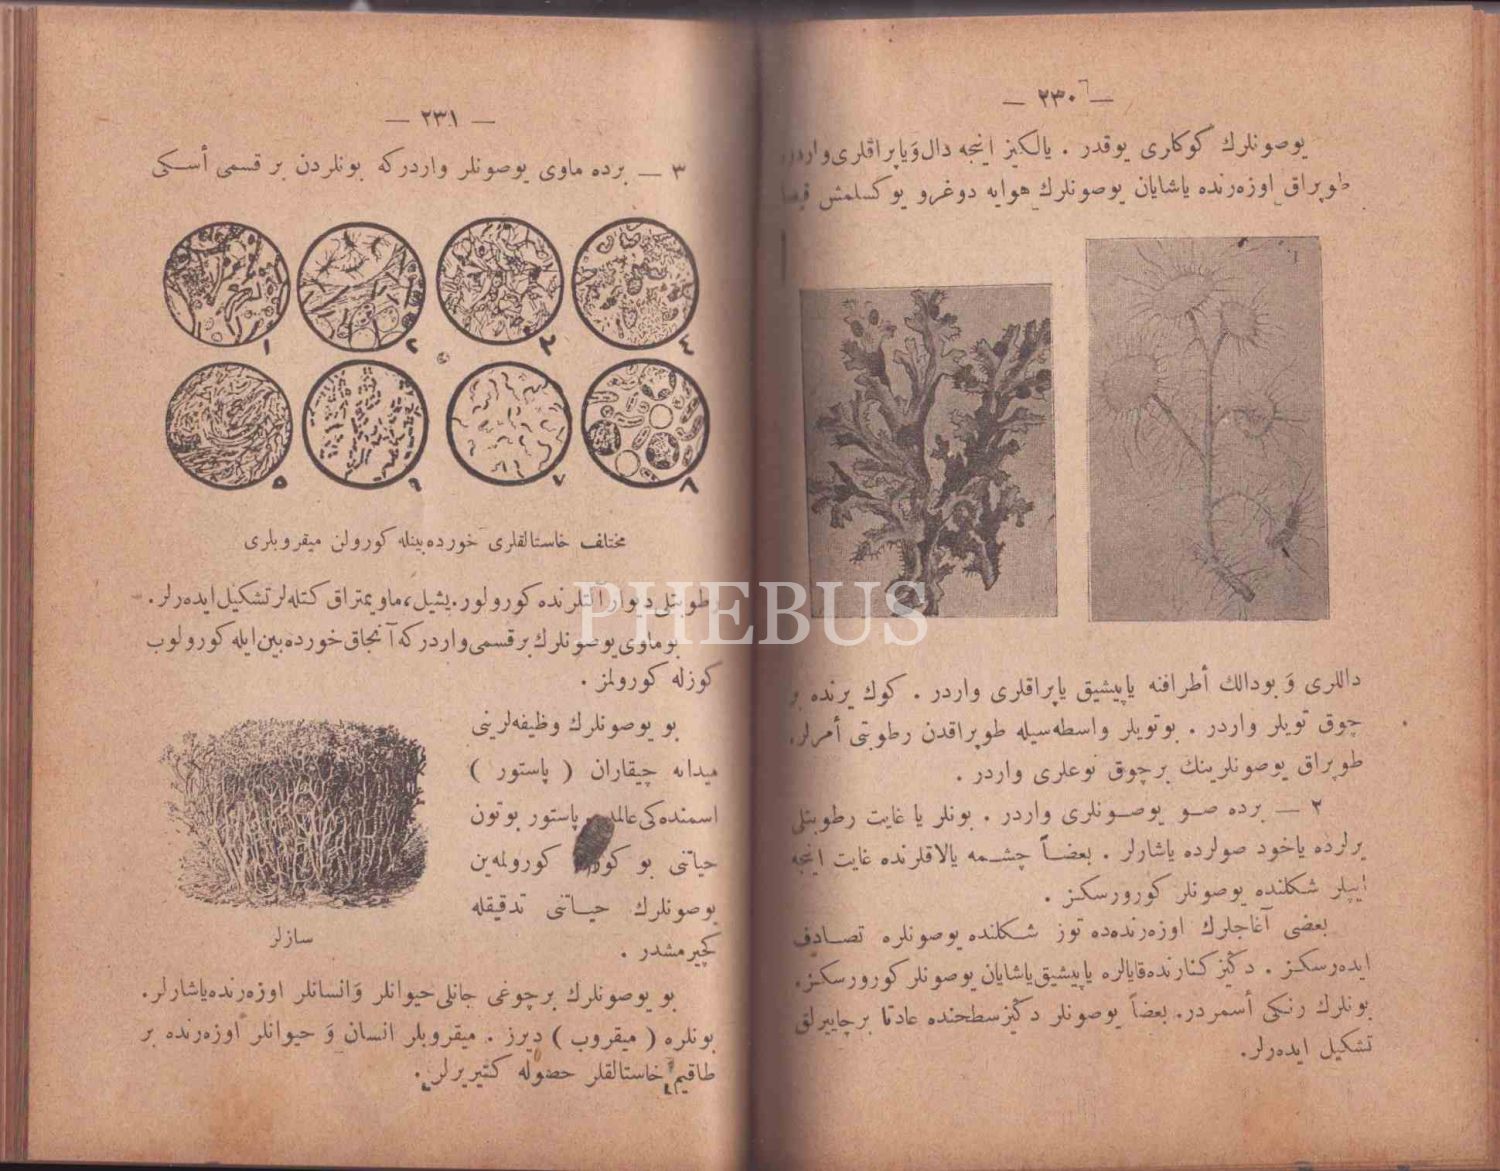 — ٢٣٠ —
یوصونلرك كوكلری یوقدر . یالكیز اینجه دال وَیاپراقلری واردر.
طوپراق اوزەرنده یاشایان یوصونلرك هوایه دوغرو یوكسلمش
داللری وَ بودالك أطرافنه یاپیشیق یاپراقلری واردر . كوك یرنده
چوق تویلر واردر . بوتویلر واسطەسیله طوپراقدن رطوبتی أمرلر.
طوپراق یوصونلرینك برچوق نوعلری واردر .
٢ — برده صو یوصونلری واردر . بونلر یا غایت رطوبتلی
یرلرده یاخود صولرده یاشارلر . بعضاً چشمه یالاقلرنده غایت اینجه
ایپلر شكلنده یوصونلر كورورسكز .
بعضی آغاجلرك اوزەرنده‌ده توز شكلنده یوصونلره تصادف
ایدەرسكز . دكیز كنارنده قایالره یاپیشیق یاشایان یوصونلر كورورسكز.
بونلرك رنكی أسمردر. بعضاً یوصونلر دكیزسطحنده عادتا برچاییرلق
تشكیل ایدەرلر.
— ٢٣١ —
٣ — برده ماوی یوصونلر واردركه بونلردن بر قسمی أسكی
١ ٢ ٣ ٤
٥ ٦ ٧ ٨
مختلف خاستالقلری خوردەبینله كورولن میقروبلری
رطوبتلی دیوار آلتلرنده كورولور. یشیل، ماویمتراق كتلەلر تشكیل ایدەرلر.
بو ماوی یوصونلرك برقسمی واردركه آنجاق خوردەبین ایله كورولوب
كوزله كورولمز .
بو یوصونلرك وظیفەلرینی
میدانه چیقاران ( پاستور )
اسمنده‌كی عالمدر. پاستور بوتون
حیاتنی بو كوزله كورولمەین
یوصونلرك حیاتنی تدقیقله
كچیرمشدر .
سازلر
بو یوصونلرك برچوغی جانلی حیوانلر وَانسانلر اوزەرنده یاشارلر.
بونلره ( میقروب ) دیرز . میقروبلر انسان وَ حیوانلر اوزەرنده بر
طاقیم خاستالقلر حصوله كتیریرلر.
PHEBUS